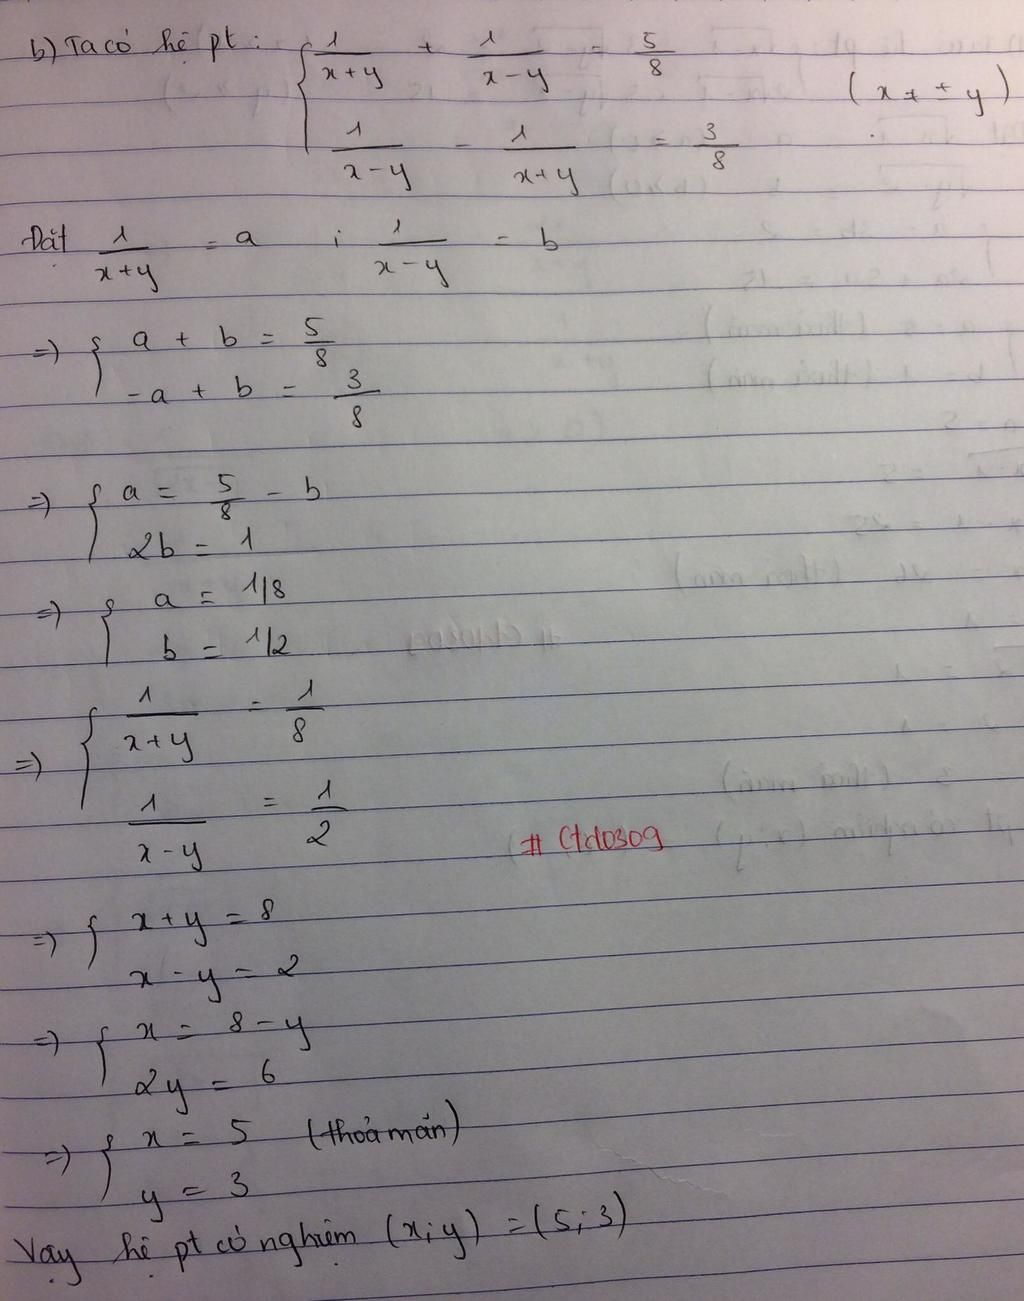 b) Ta có hệ pt: { 1/(x+y) + 1/(x-y) = 5/8
1/(x-y) - 1/(x+y) = 3/8 (x ≠ ± y)
Đặt 1/(x+y) = a ; 1/(x-y) = b
=> { a + b = 5/8
-a + b = 3/8
=> { a = 5/8 - b
2b = 1
=> { a = 1/8
b = 1/2
=> { 1/(x+y) = 1/8
1/(x-y) = 1/2
# Ctd0309
=> { x+y = 8
x - y = 2
=> { x = 8 - y
2y = 6
=> { x = 5 (thoả mãn)
y = 3
Vạy hệ pt có nghiệm (x;y) = (5;3)